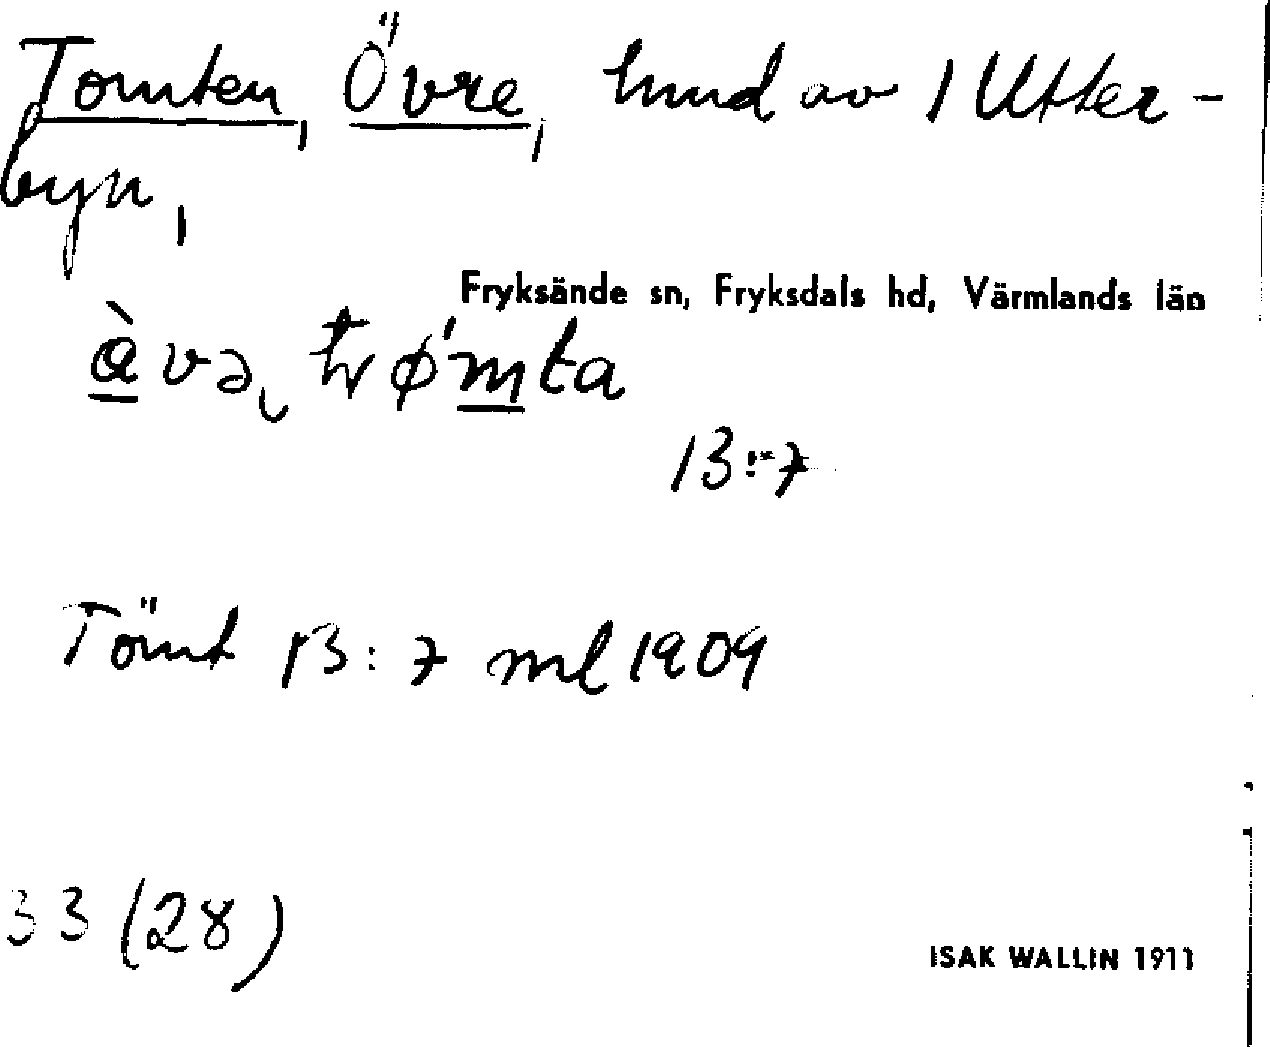 Tomten, Övre, hmd av 1 Utter-
byn,
Fryksände sn, Fryksdals hd, Värmlands län
13:7
Tömt 13:7 ml 1909
33 (28)
ISAK WALLIN 1911